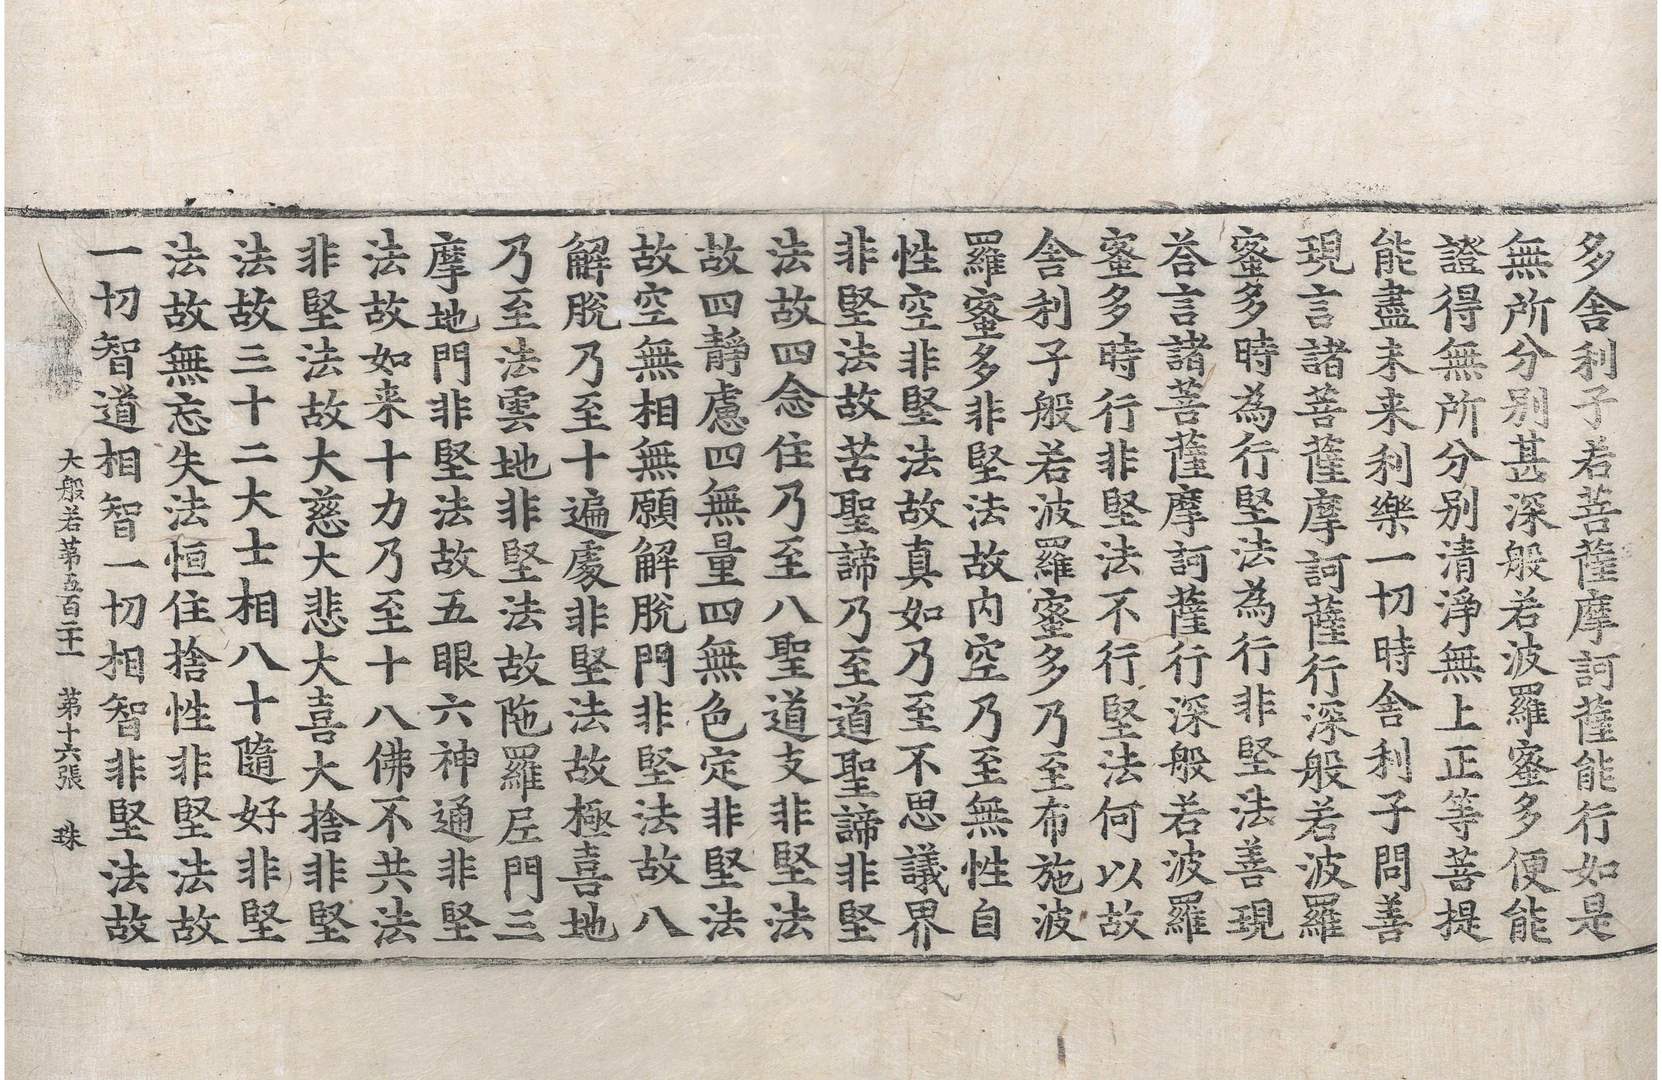 多舍利子若菩薩摩訶薩能行如是
無所分别甚深般若波羅蜜多便能
證得無所分别清淨無上正等菩提
能盡未来利樂一切時舍利子問善
現言諸菩薩摩訶薩行深般若波羅
蜜多時為行堅法為行非堅法善現
荅言諸菩薩摩訶薩行深般若波羅
蜜多時行非堅法不行堅法何以故
舍利子般若波羅蜜多乃至布施波
羅蜜多非堅法故内空乃至無性自
性空非堅法故真如乃至不思議界
非堅法故苦聖諦乃至道聖諦非堅
法故四念住乃至八聖道支非堅法
故四靜慮四無量四無色定非堅法
故空無相無願解脫門非堅法故八
解脫乃至十遍處非堅法故極喜地
乃至法雲地非堅法故陁羅尼門三
摩地門非堅法故五眼六神通非堅
法故如来十力乃至十八佛不共法
非堅法故大慈大悲大喜大捨非堅
法故三十二大士相八十隨好非堅
法故無忘失法恒住捨性非堅法故
一切智道相智一切相智非堅法故
大般若第五百二十一 第十六張 珠